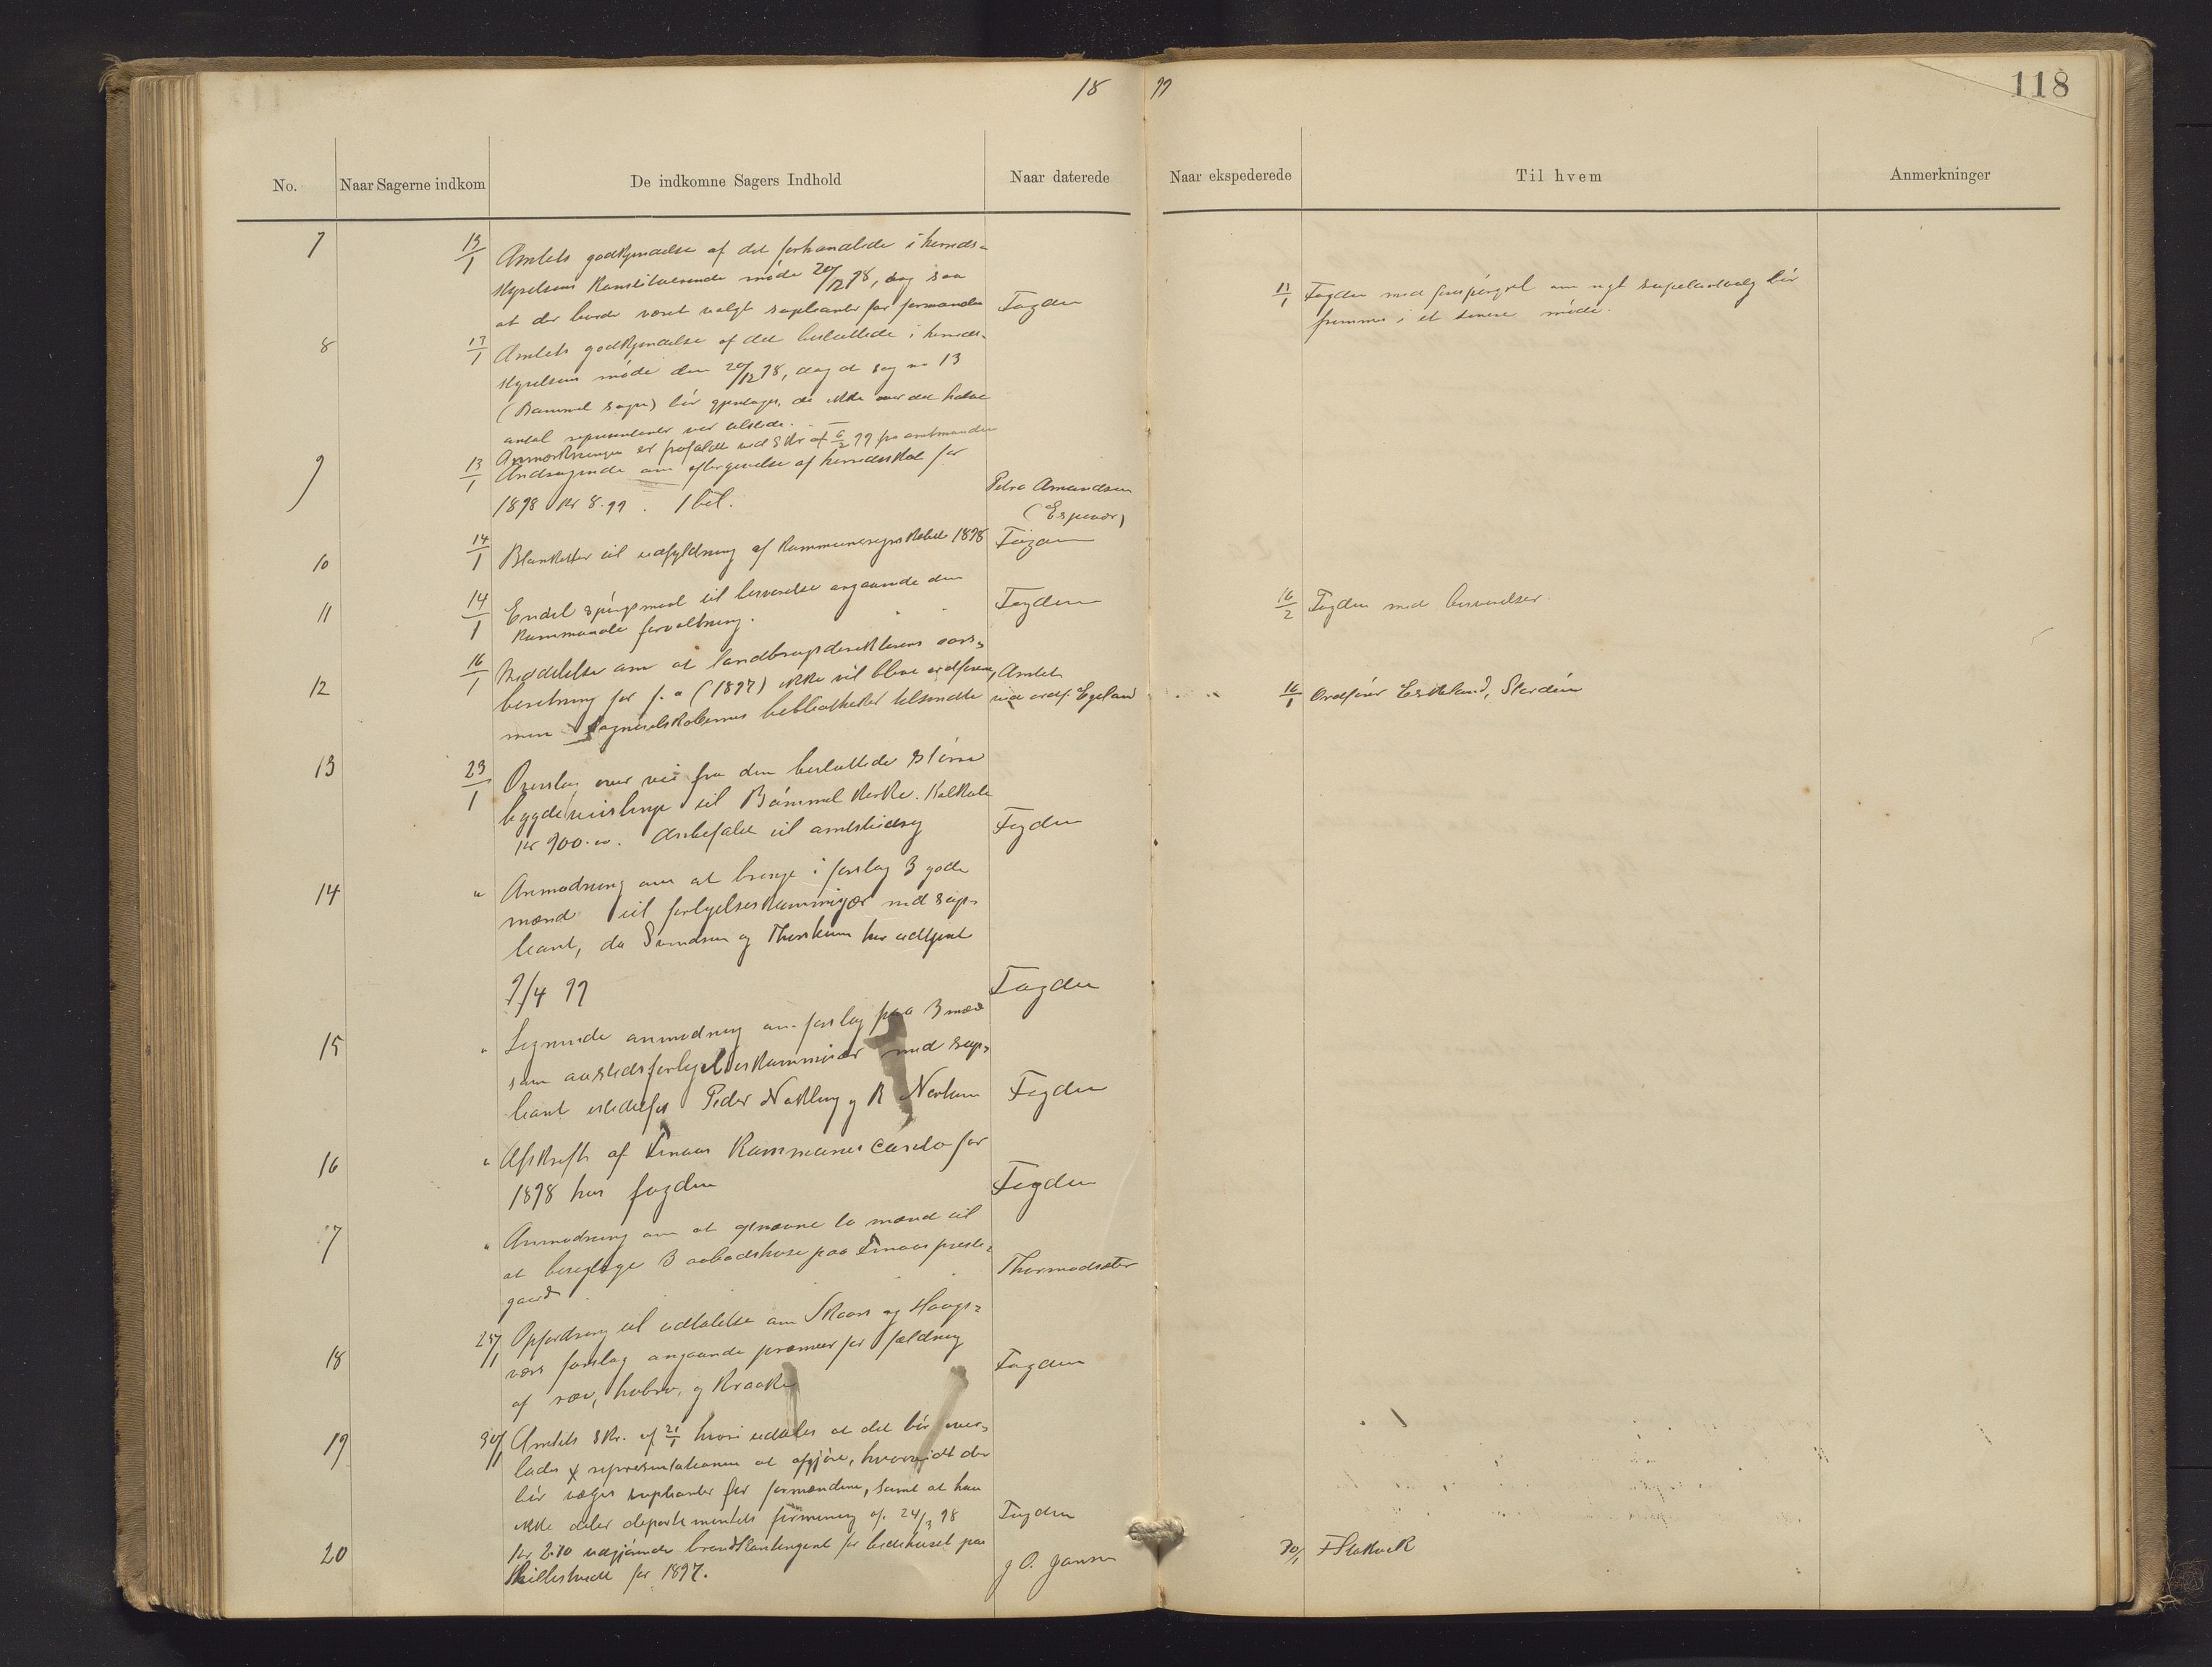 18 99
118
No.
Naar Sagerne indkom
De indkomne Sagers Indhold
Naar daterede
Naar ekspederede
Til hvem
Anmerkninger
7 13/1 Amtets godkjendelse af det forhandlede i herreds-
styrelsens konstituerende møde 20/12 98, dog saa
at der burde været valgt supleanter for formanden Fogden
13/1 Fogden med forespørgsel om nyt supleantvalg bør
fremmes i et senere møde.
8 13/1 Amtets godkjendelse af det besluttede i herreds-
styrelsens møde den 20/12 98, dog at sag no 13
(Bømmel sogn) bør gjentages, da ikke over det halve
antal representanter var tilstede. –
Anmærkningen er frafaldt ved Skr af 6/2 99 fra amtmanden
9 13/1 Andragende om eftergivelse af herredsskat for
1898 kr 8.99. 1 bil.
Petra Amundsen
(Espevær)
10 14/1 Blanketter til udfyldning af kommuneregnskabet 1898 Fogden
11 14/1 Endel spørgsmaal til besvarelse angaaende den
kommunale forvaltning.
Fogden
16/2 Fogden med besvarelser.
12 16/1 Meddelelse om at landbrugsdirektørens aars-
beretning for f. a (1897) ikke vil blive ordførerne,
men sogneselskabernes bibliotheker tilsendte
Amtet
via ordf. Egeland
16/1 Ordfører Eskeland, Stordøen
13 23/1 Overslag over vei fra den besluttede større
bygdeveislinje til Bømmel kirke. Kalkule
Kr 900.00. Anbefalet til amtsbidrag Fogden
14 " Anmodning om at bringe i forslag 3 gode
mænd til forligelseskommisær med sup-
leant, da Svendsen og Thorsheim har udtjent
9/4 99 Fogden
15 " Lignende anmodning om forslag paa 3 mænd
som aastedsforligelseskommisær med sup-
leant istedetfor Peder Nøkling og K Nerheim Fogden
16 " Afskrift af Finaas kommunes conto for
1898 hos fogden Fogden
17 " Anmodning om at opnævne to mænd til
at besigtige 3 aabodshuse paa Finaas preste-
gaard. Thormodsæter
18 25/1 Opfordring til udtalelse om Skaars og Haags-
værs forslag angaaende præmier for fældning
af ræv, hubro, og kraake Fogden
19 30/1 Amtets Skr. af 21/1 hvori udtales at det bør over-
lades representationen at afgjøre, hvorvidt der
bør vælges supleanter for formændene, samt at han
ikke deler departementets formening af 24/3 98 Fogden
20 Kr 2.70 udgjørende brandkontingent for bedehuset paa
for 1897. J O. Jansen
30/1